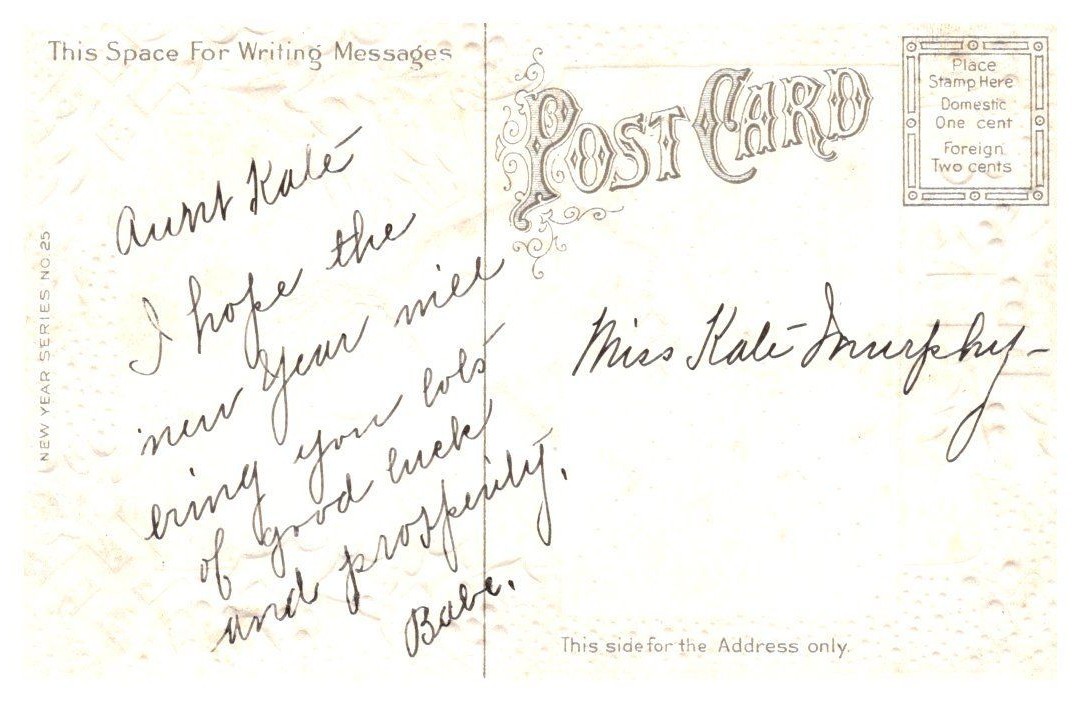 This Space For Writing Messages
NEW YEAR SERIES NO. 25
Aunt Kate
I hope the
new Year will
bring you lots
of good luck
and prosperity.
Babe.
POST CARD
Place
Stamp Here
Domestic
One cent
Foreign
Two cents
Miss Kate Murphy-
This side for the Address only.